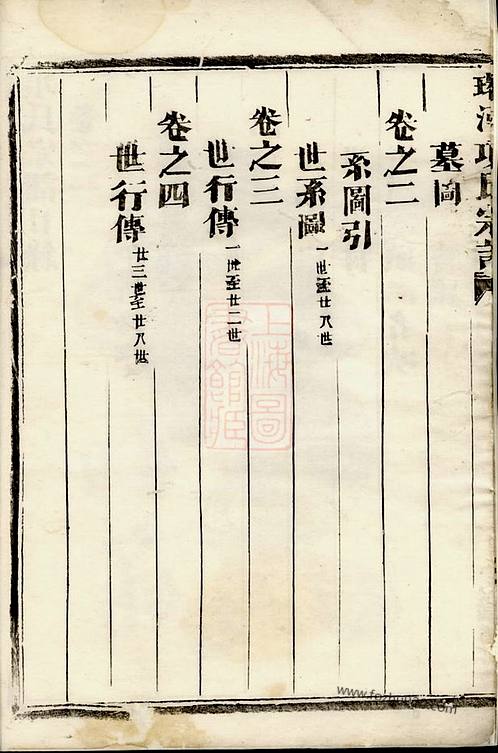 墓圖
卷之二
系圖引
世系圖 一世至廿八世
卷之三
世行傳 一世至廿二世
卷之四
世行傳 廿三世至廿八世
上海圖
www.fozhu
.com